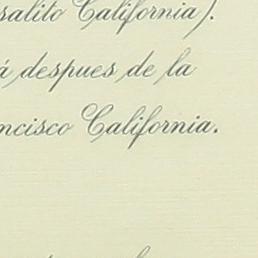 salito California).
á despues de la
ncisco California.